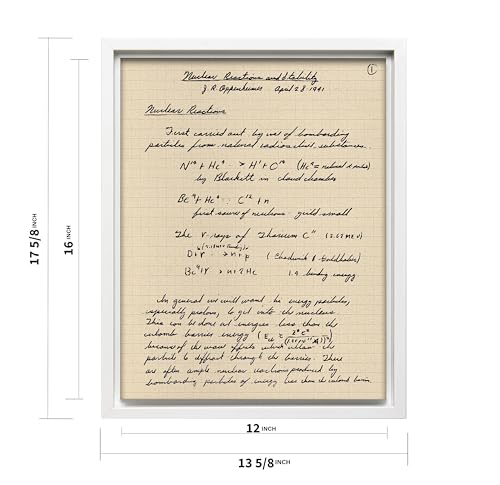 Nuclear Reactions and Stability
①
J. R. Oppenheimer April 28 1941
Nuclear Reactions
First carried out by use of bombarding
particles from natural radioactive substances.
N¹⁴ + He⁴ → H¹ + C¹⁴ (He⁴ = natural α
by Blackett in cloud chamber
Be⁹ + He⁴ C¹² + n
first source of neutrons yield small
The γ-rays of Thorium C" (2.62 MeV)
D + γ → n + p (Chadwick & Goldhaber)
Be⁹ + γ → n + 2He binding energy
In general we will want hi energy particles,
especially protons, to get into the nucleus
This can be done at energies less than the
coulomb barrier energy
because of the wave effects which allow the
particle to diffract through the barrier. There
are often ample nuclear reactions produced by
bombarding particles of energy less than the coulomb barrier.
17 5/8 INCH
16 INCH
12 INCH
13 5/8 INCH